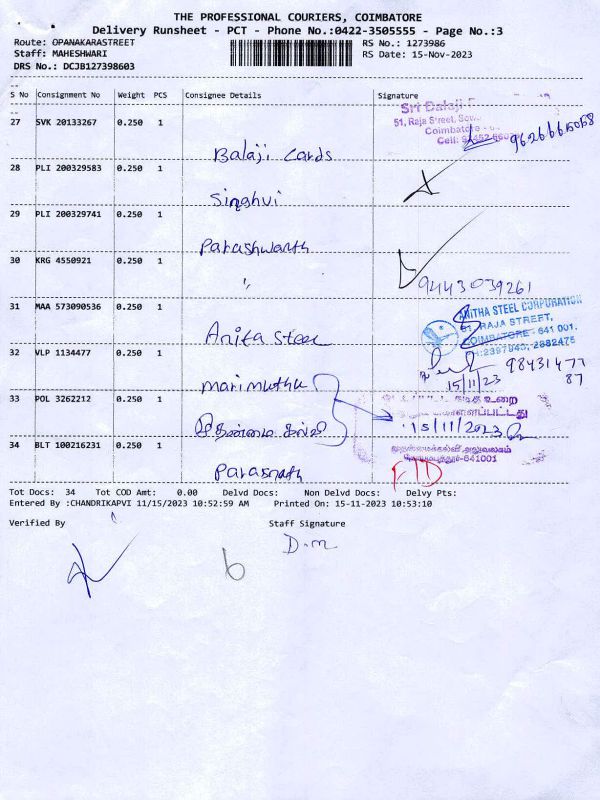 THE PROFESSIONAL COURIERS, COIMBATORE
Delivery Runsheet - PCT - Phone No.:0422-3505555 - Page No.:3
Route: OPANAKARASTREET RS No.: 1273986
Staff: MAHESHWARI RS Date: 15-Nov-2023
DRS No.: DCJB127398603
S No Consignment No Weight PCS Consignee Details Signature
27 SVK 20133267 0.250 1
Sri Balaji
51, Raja Street,
Coimbatore
Cell:
9626665058
Balaji Cards
28 PLI 200329583 0.250 1
Singhvi
29 PLI 200329741 0.250 1
Parashwanth
30 KRG 4550921 0.250 1
"
9443039261
31 MAA 573090536 0.250 1
ANITHA STEEL CORPORATION
91, RAJA STREET,
COIMBATORE - 641 001.
PH:2397943, 2382475
Anita Steel
32 VLP 1134477 0.250 1
98431477
87
15/11/23
marimuthu
33 POL 3262212 0.250 1
உறை
15/11/2023
முதன்மைக்கல்வி அலுவலகம்
641001
முதன்மை கல்வி
34 BLT 100216231 0.250 1
Parasnath
Tot Docs: 34 Tot COD Amt: 0.00 Delvd Docs: Non Delvd Docs: Delvy Pts:
Entered By :CHANDRIKAPVI 11/15/2023 10:52:59 AM Printed On: 15-11-2023 10:53:10
Verified By Staff Signature
D.m